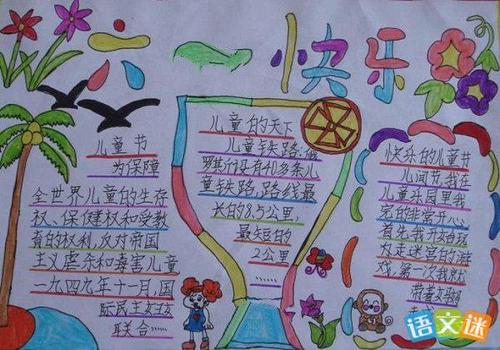 六一快乐
儿童节
为保障
全世界儿童的生存
权、保健权和受教
育的权利,反对帝国
主义虐杀和毒害儿童
一九四九年十一月,国
际民主妇女
联合一
儿童的天下
儿童铁路:俄
罗斯设有40多条儿
童铁路,路线最
长的98.5公里,
最短的
2公里
快乐的儿童节
儿间节,我在
儿童乐园里我
完的非常开心
首先我开始玩
内走迷宫的游
戏,第一次我就
带着
语文迷